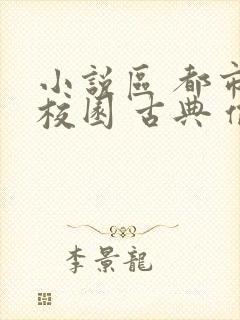 小說區 都市
校園 古典
李景龍